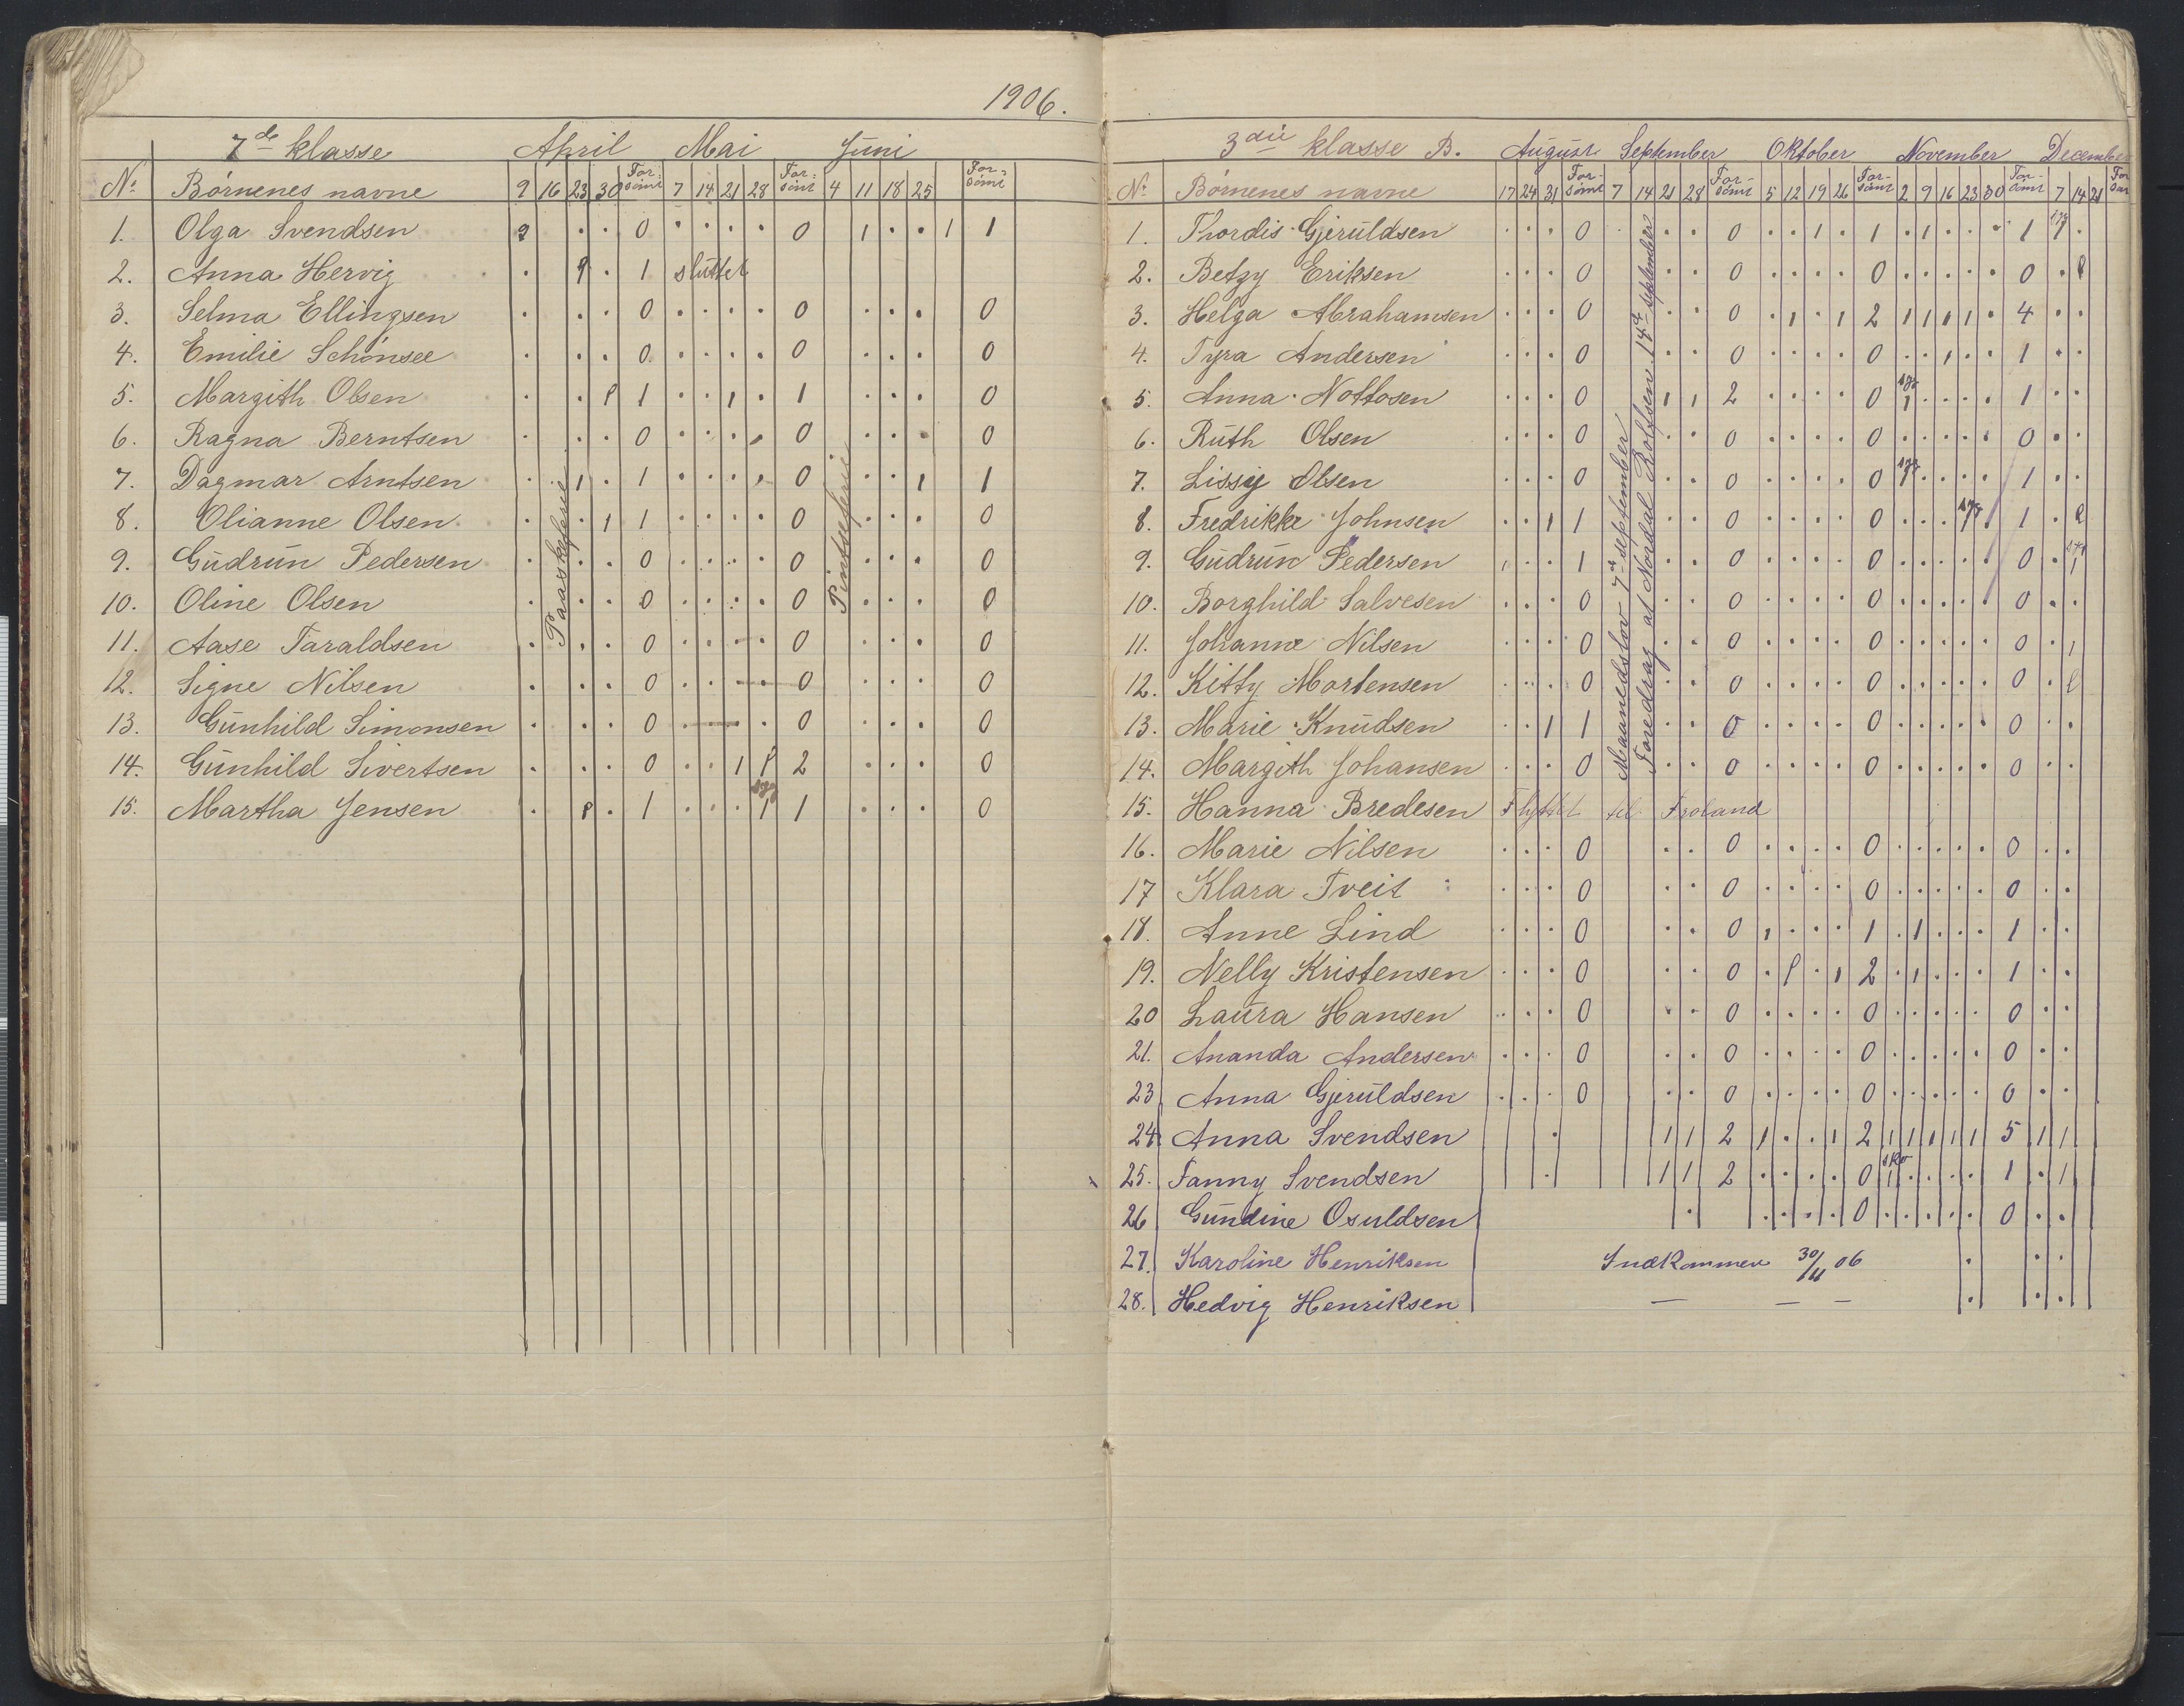 1906.
7de klasse April Mai Juni
No Børnenes navne 9 16 23 30 Forsømt 7 14 21 28 Forsømt 4 11 18 25 Forsømt
1. Olga Svendsen . . 0 . . . . 0 1 . . 1 1
2. Anna Hervig . . 1 sluttet
3. Selma Ellingsen . . . 0 . . . . 0 . . . 0
4. Emilie Schønsee . . . 0 . . . . 0 . . . 0
5. Margith Olsen . . 1 . . 1 . 1 . . . 0
6. Ragna Berntsen . . . 0 . . . . 0 . . . 0
7. Dagmar Arntsen . 1 . 1 . . . . 0 . . 1 1
8. Olianne Olsen . . 1 1 . . . . 0 . . . 0
9. Gudrun Pedersen . . . 0 . . . . 0 . . . 0
10. Oline Olsen . . . 0 . . . . 0 . . . 0
11. Aase Taraldsen . . . 0 . . . . 0 . . . 0
12. Signe Nilsen . . . 0 . . . . 0 . . . 0
13. Gunhild Simonsen . . . 0 . . . . 0 . . . 0
14. Gunhild Sivertsen . . . 0 . . 1 2 . . . 0
15. Martha Jensen . . 1 . . . syg 1 1 . . . 0
Paaskeferie
Pintseferie
3die klasse B. August September Oktober November December
No Børnenes navne 17 24 31 Forsømt 7 14 21 28 Forsømt 5 12 19 26 Forsømt 2 9 16 23 30 Forsømt 7 14 21
1. Thordis Gjeruldsen . . . 0 . . . 0 . . 1 . 1 . 1 . . . 1 syg 1 .
2. Betzy Eriksen . . . 0 . . 0 . . . . 0 . . . . . 0 .
3. Helga Abrahamsen . . . 0 . . 0 . 1 . 1 2 1 1 1 1 . 4 . .
4. Tyra Andersen . . . 0 . . 0 . . . . 0 . . 1 . . 1 . .
5. Anna Nottosen . . . 0 1 1 2 . . . . 0 syg 1 . . . . 1 . .
6. Ruth Olsen . . . 0 . . 0 . . . . 0 . . . . . 0 . .
7. Lissy Olsen . . . 0 . . 0 . . . . 0 syg 1 . . . . 1 . .
8. Fredrikke Johnsen . . 1 1 . . 0 . . . . 0 . . . syg 1 . 1 .
9. Gudrun Pedersen 1 . . 1 . . 0 . . . . 0 . . . . . 0 . syg 1
10. Borghild Salvesen . . . 0 . . 0 . . . . 0 . . . . . 0 . .
11. Johanne Nilsen . . . 0 . . 0 . . . . 0 . . . . . 0 . 1
12. Kitty Mortensen . . . 0 . . 0 . . . . 0 . . . . . 0 .
13. Marie Knudsen . . 1 1 . . 0 . . . . 0 . . . . . 0 . .
14. Margith Johansen . . . 0 . . 0 . . . . 0 . . . . . 0 . .
15. Hanna Bredesen Flyttet til Froland
16. Marie Nilsen . . . 0 . . 0 . . . . 0 . . . . . 0 . .
17 Klara Tveit . . . 0 . . 0 . . . . 0 . . . . . 0 . .
18. Anne Lind . . . 0 . . 0 1 . . . 1 . 1 . . . 1 . .
19. Nelly Kristensen . . . 0 . . 0 . . 1 2 . 1 . . . 1 . .
20 Laura Hansen . . . 0 . . 0 . . . . 0 . . . . . 0 . .
21. Ananda Andersen . . . 0 . . 0 . . . . 0 . . . . . 0 . .
23 Anna Gjeruldsen . . . 0 . . 0 . . . . 0 . . . . . 0 . .
24 Anna Svendsen . 1 1 2 1 . . 1 2 1 1 1 1 1 5 1 1
25. Fanny Svendsen . 1 1 2 . . . . 0 sko 1 . . . . 1 . 1
26 Gundine Osuldsen . . . . . 0 . . . . . 0 . .
27. Karoline Henriksen Indkommen 30/11 06 . . .
28. Hedvig Henriksen — — — . . .
Maanedslov 7de september
Foredrag af Nordal Rolfsen 14de september